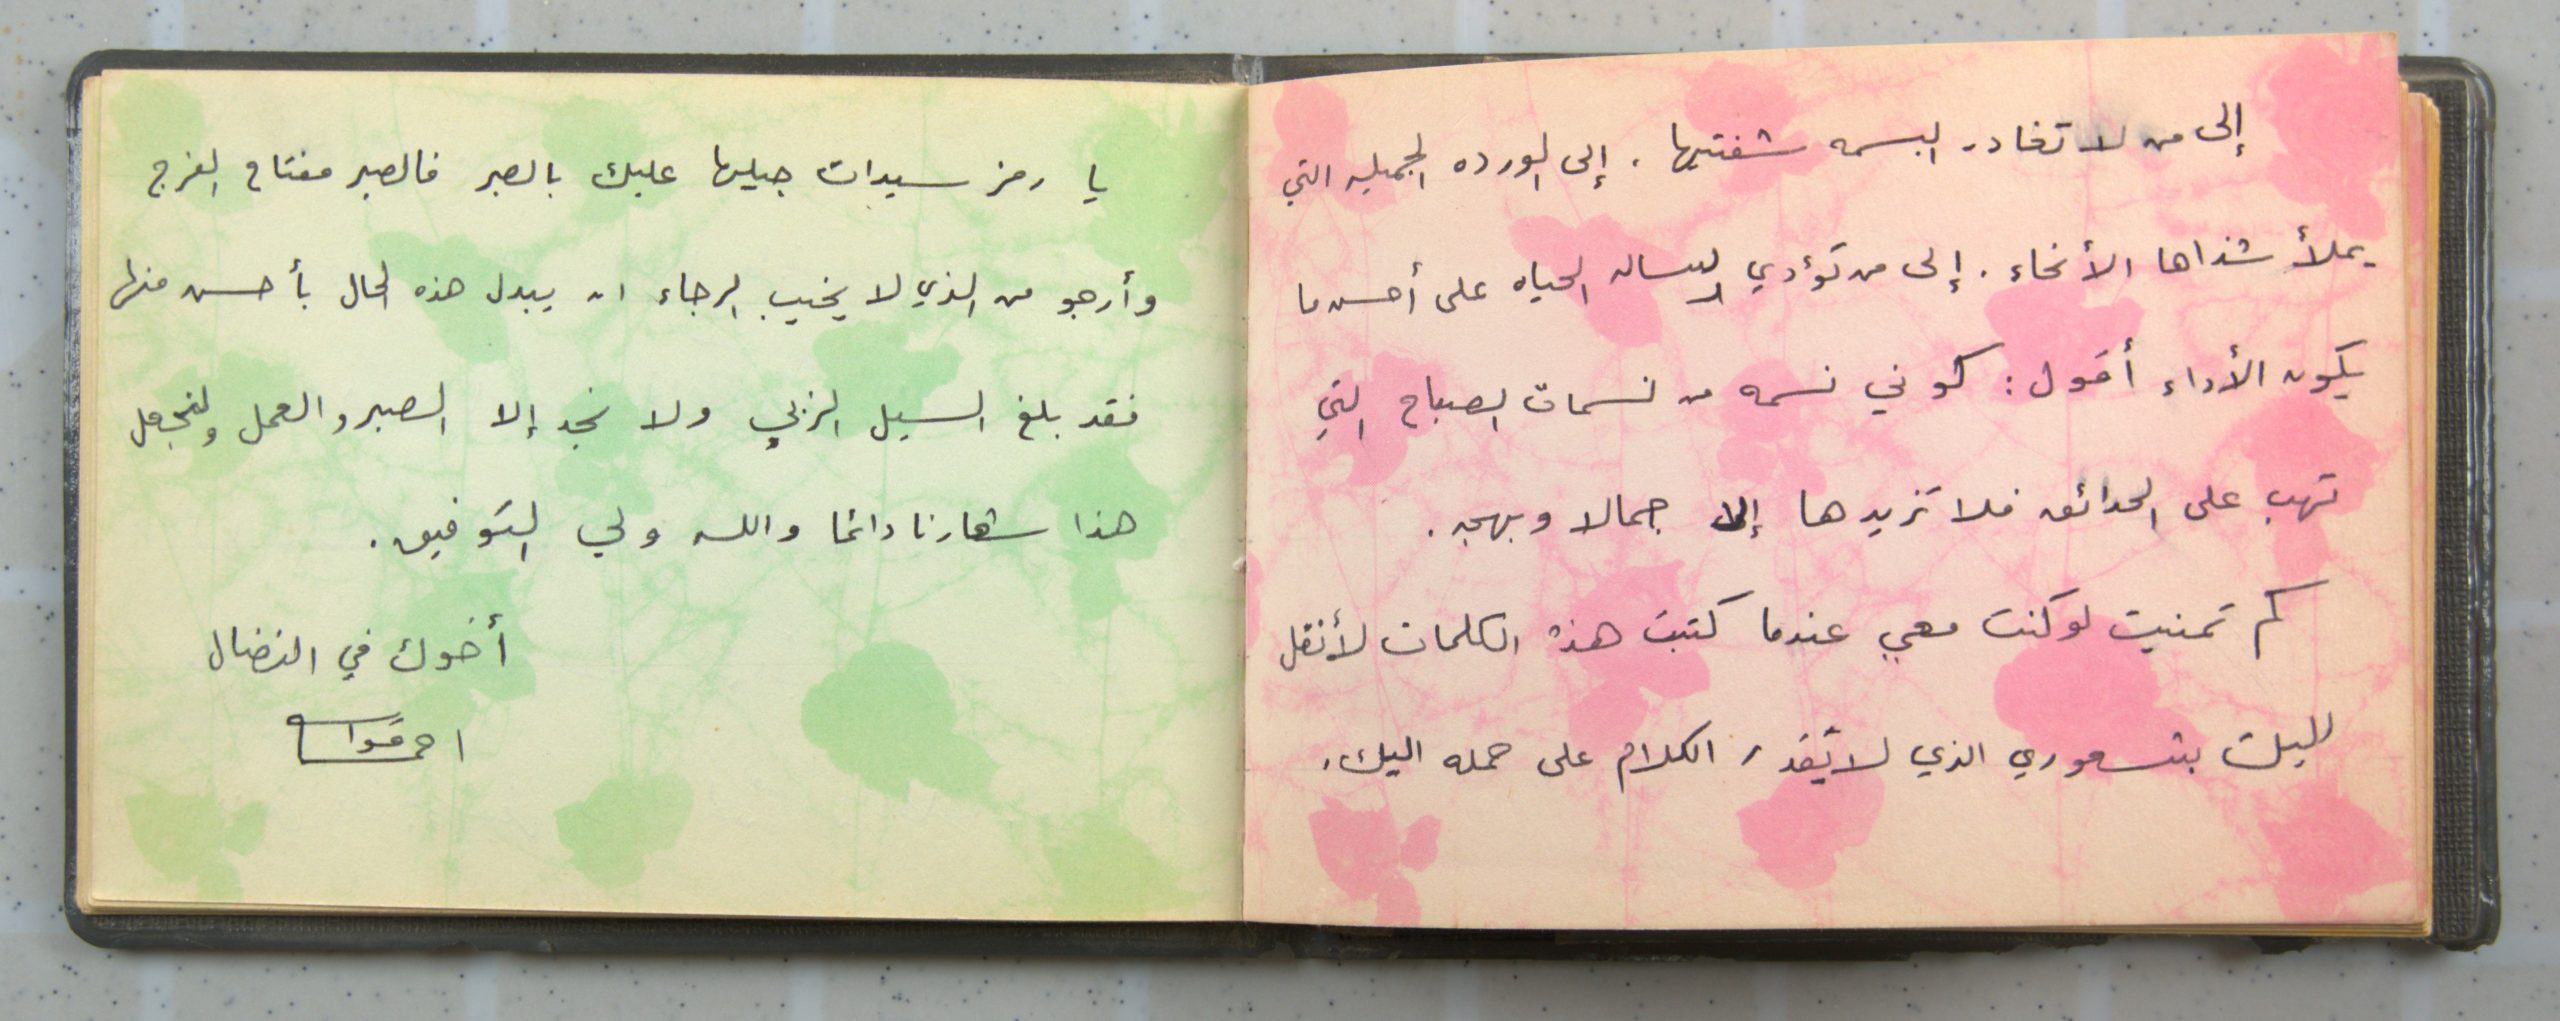 إلى من لا تغادر البسمه شفتيها . إلى الورده الجميله التي
يملأ شذاها الأنحاء . إلى من تؤدي رسالة الحياه على أحسن ما
يكون الأداء أقول : كوني نسمه من نسمات الصباح التي
تهب على الحدائق فلا تزيدها إلا جمالا وبهجه .
كم تمنيت لو كنت معي عندما كتبت هذه الكلمات لأنقل
إليك شعوري الذي لا يقدر الكلام على حمله اليك .
يا رمز سيدات جيلها عليك بالصبر فالصبر مفتاح الفرج
وأرجو من الذي لا يخيب الرجاء ان يبدل هذه الحال بأحسن منها
فقد بلغ السيل الزبى ولا نجد إلا الصبر والعمل ولنجعل
هذا شعارنا دائما والله ولي التوفيق .
أخوك في النضال